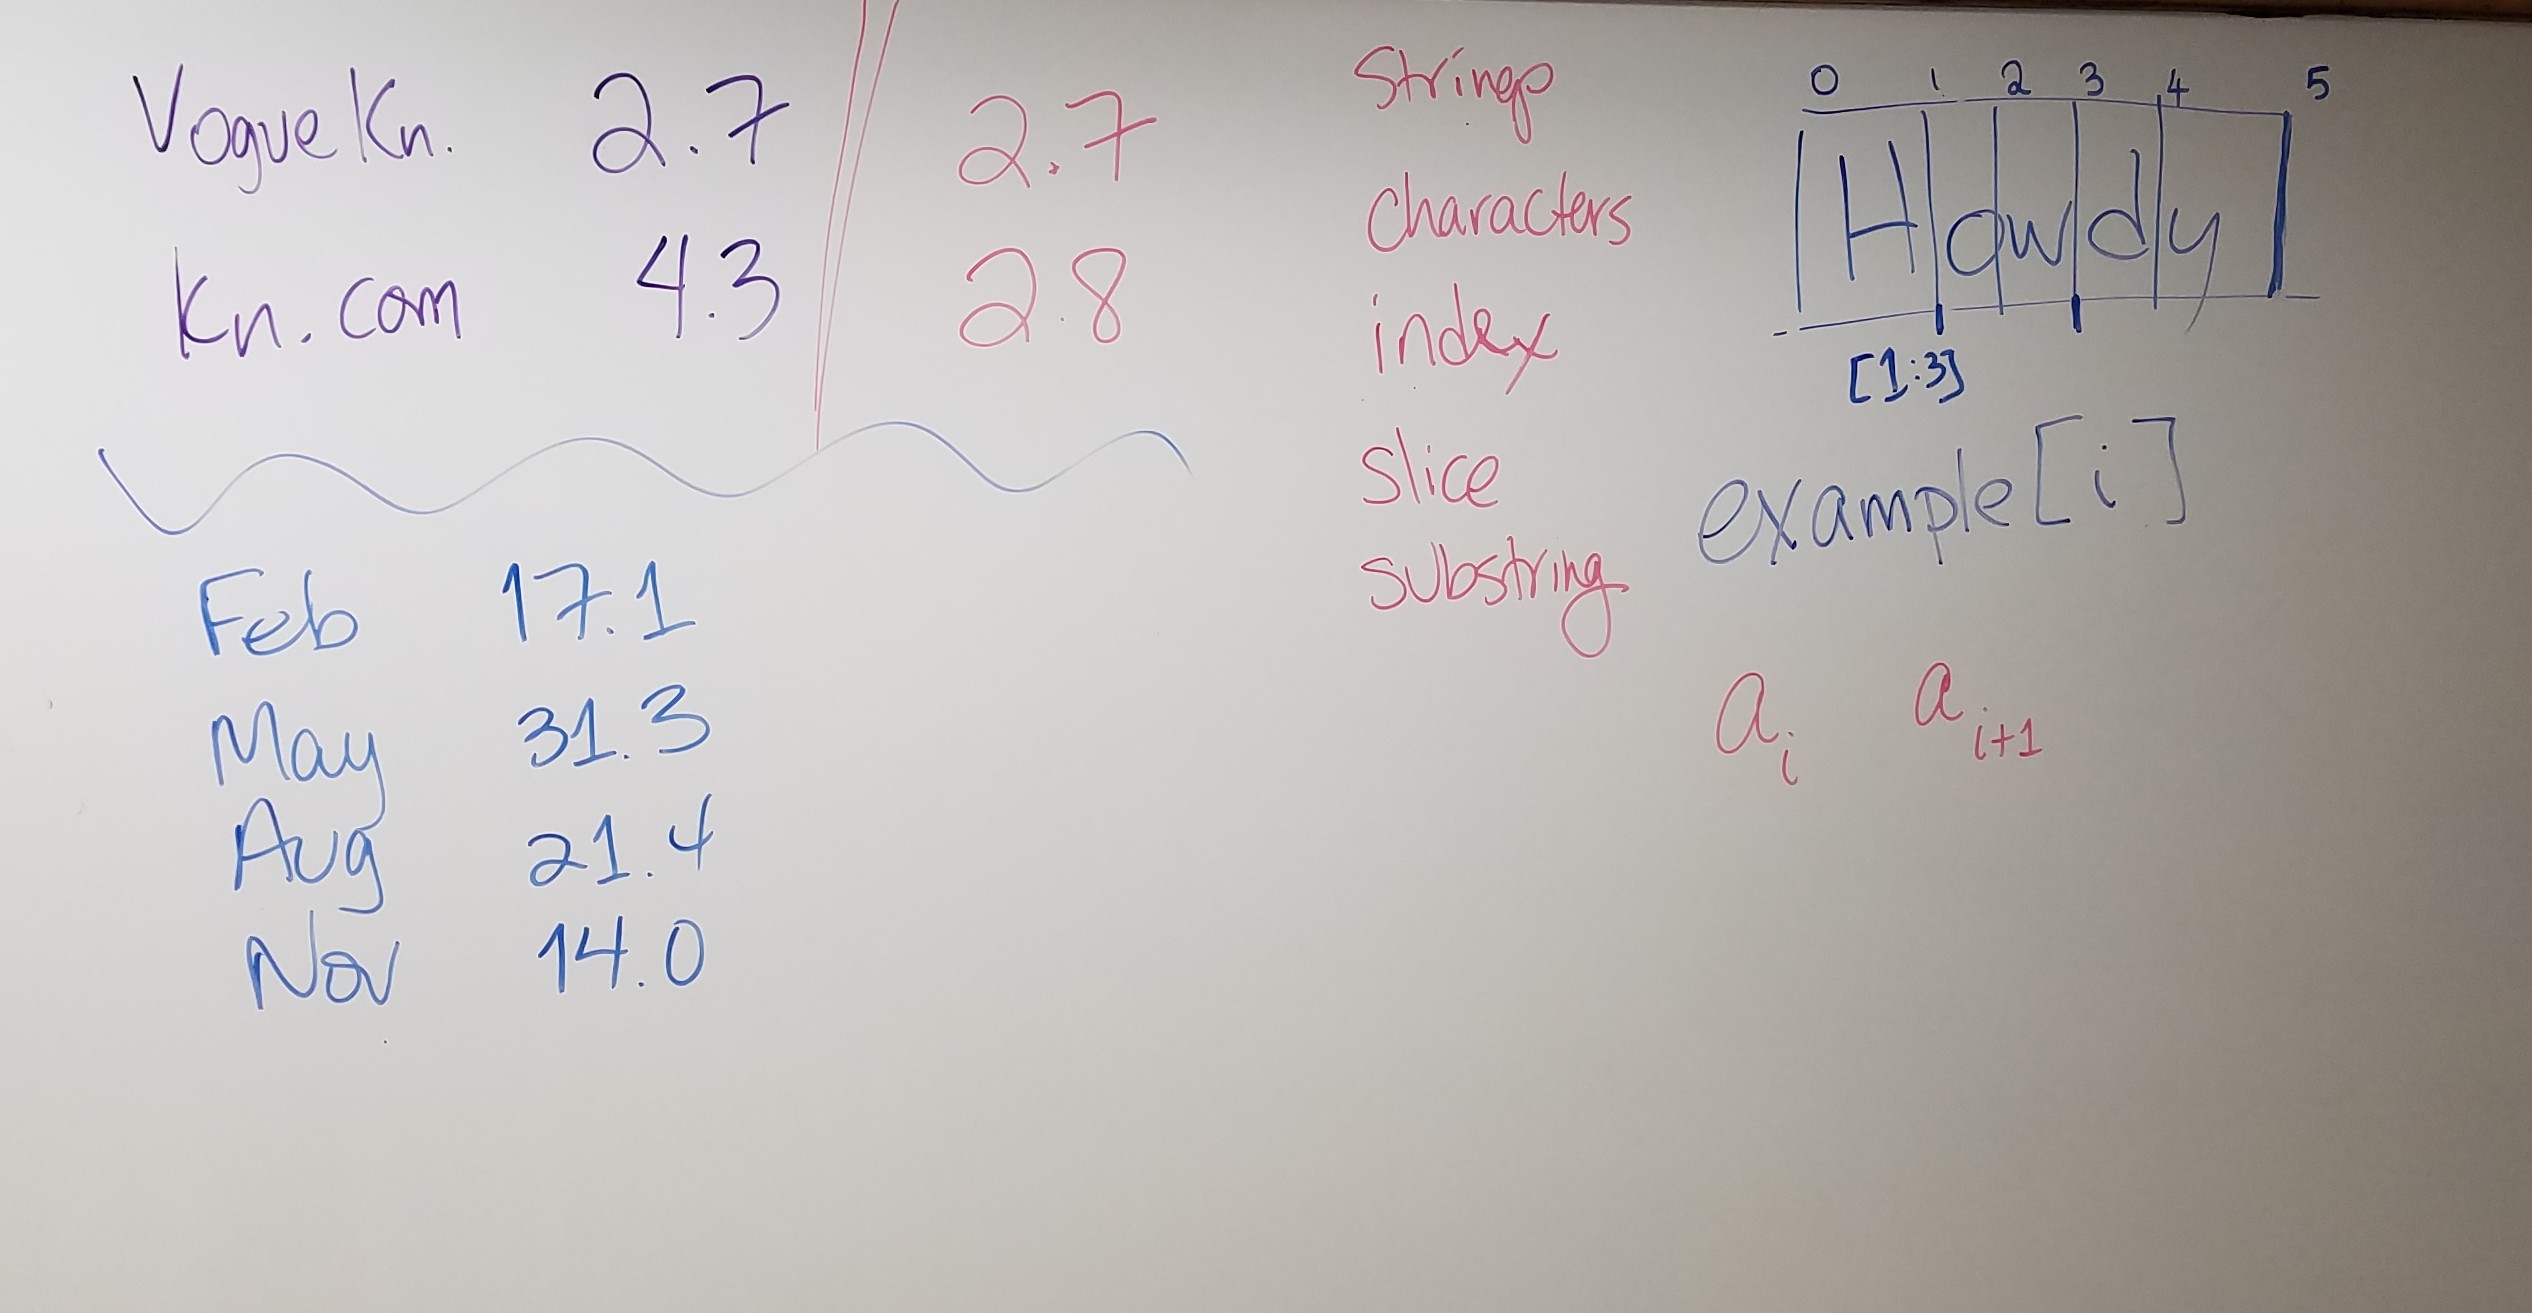 Vogue Kn. 2.7 2.7
Kn. com 4.3 2.8
Feb 17.1
May 31.3
Aug 21.4
Nov 14.0
Strings
characters
index
slice
substring
0 1 2 3 4 5
Howdy
[1:3]
example[i]
a_i a_{i+1}